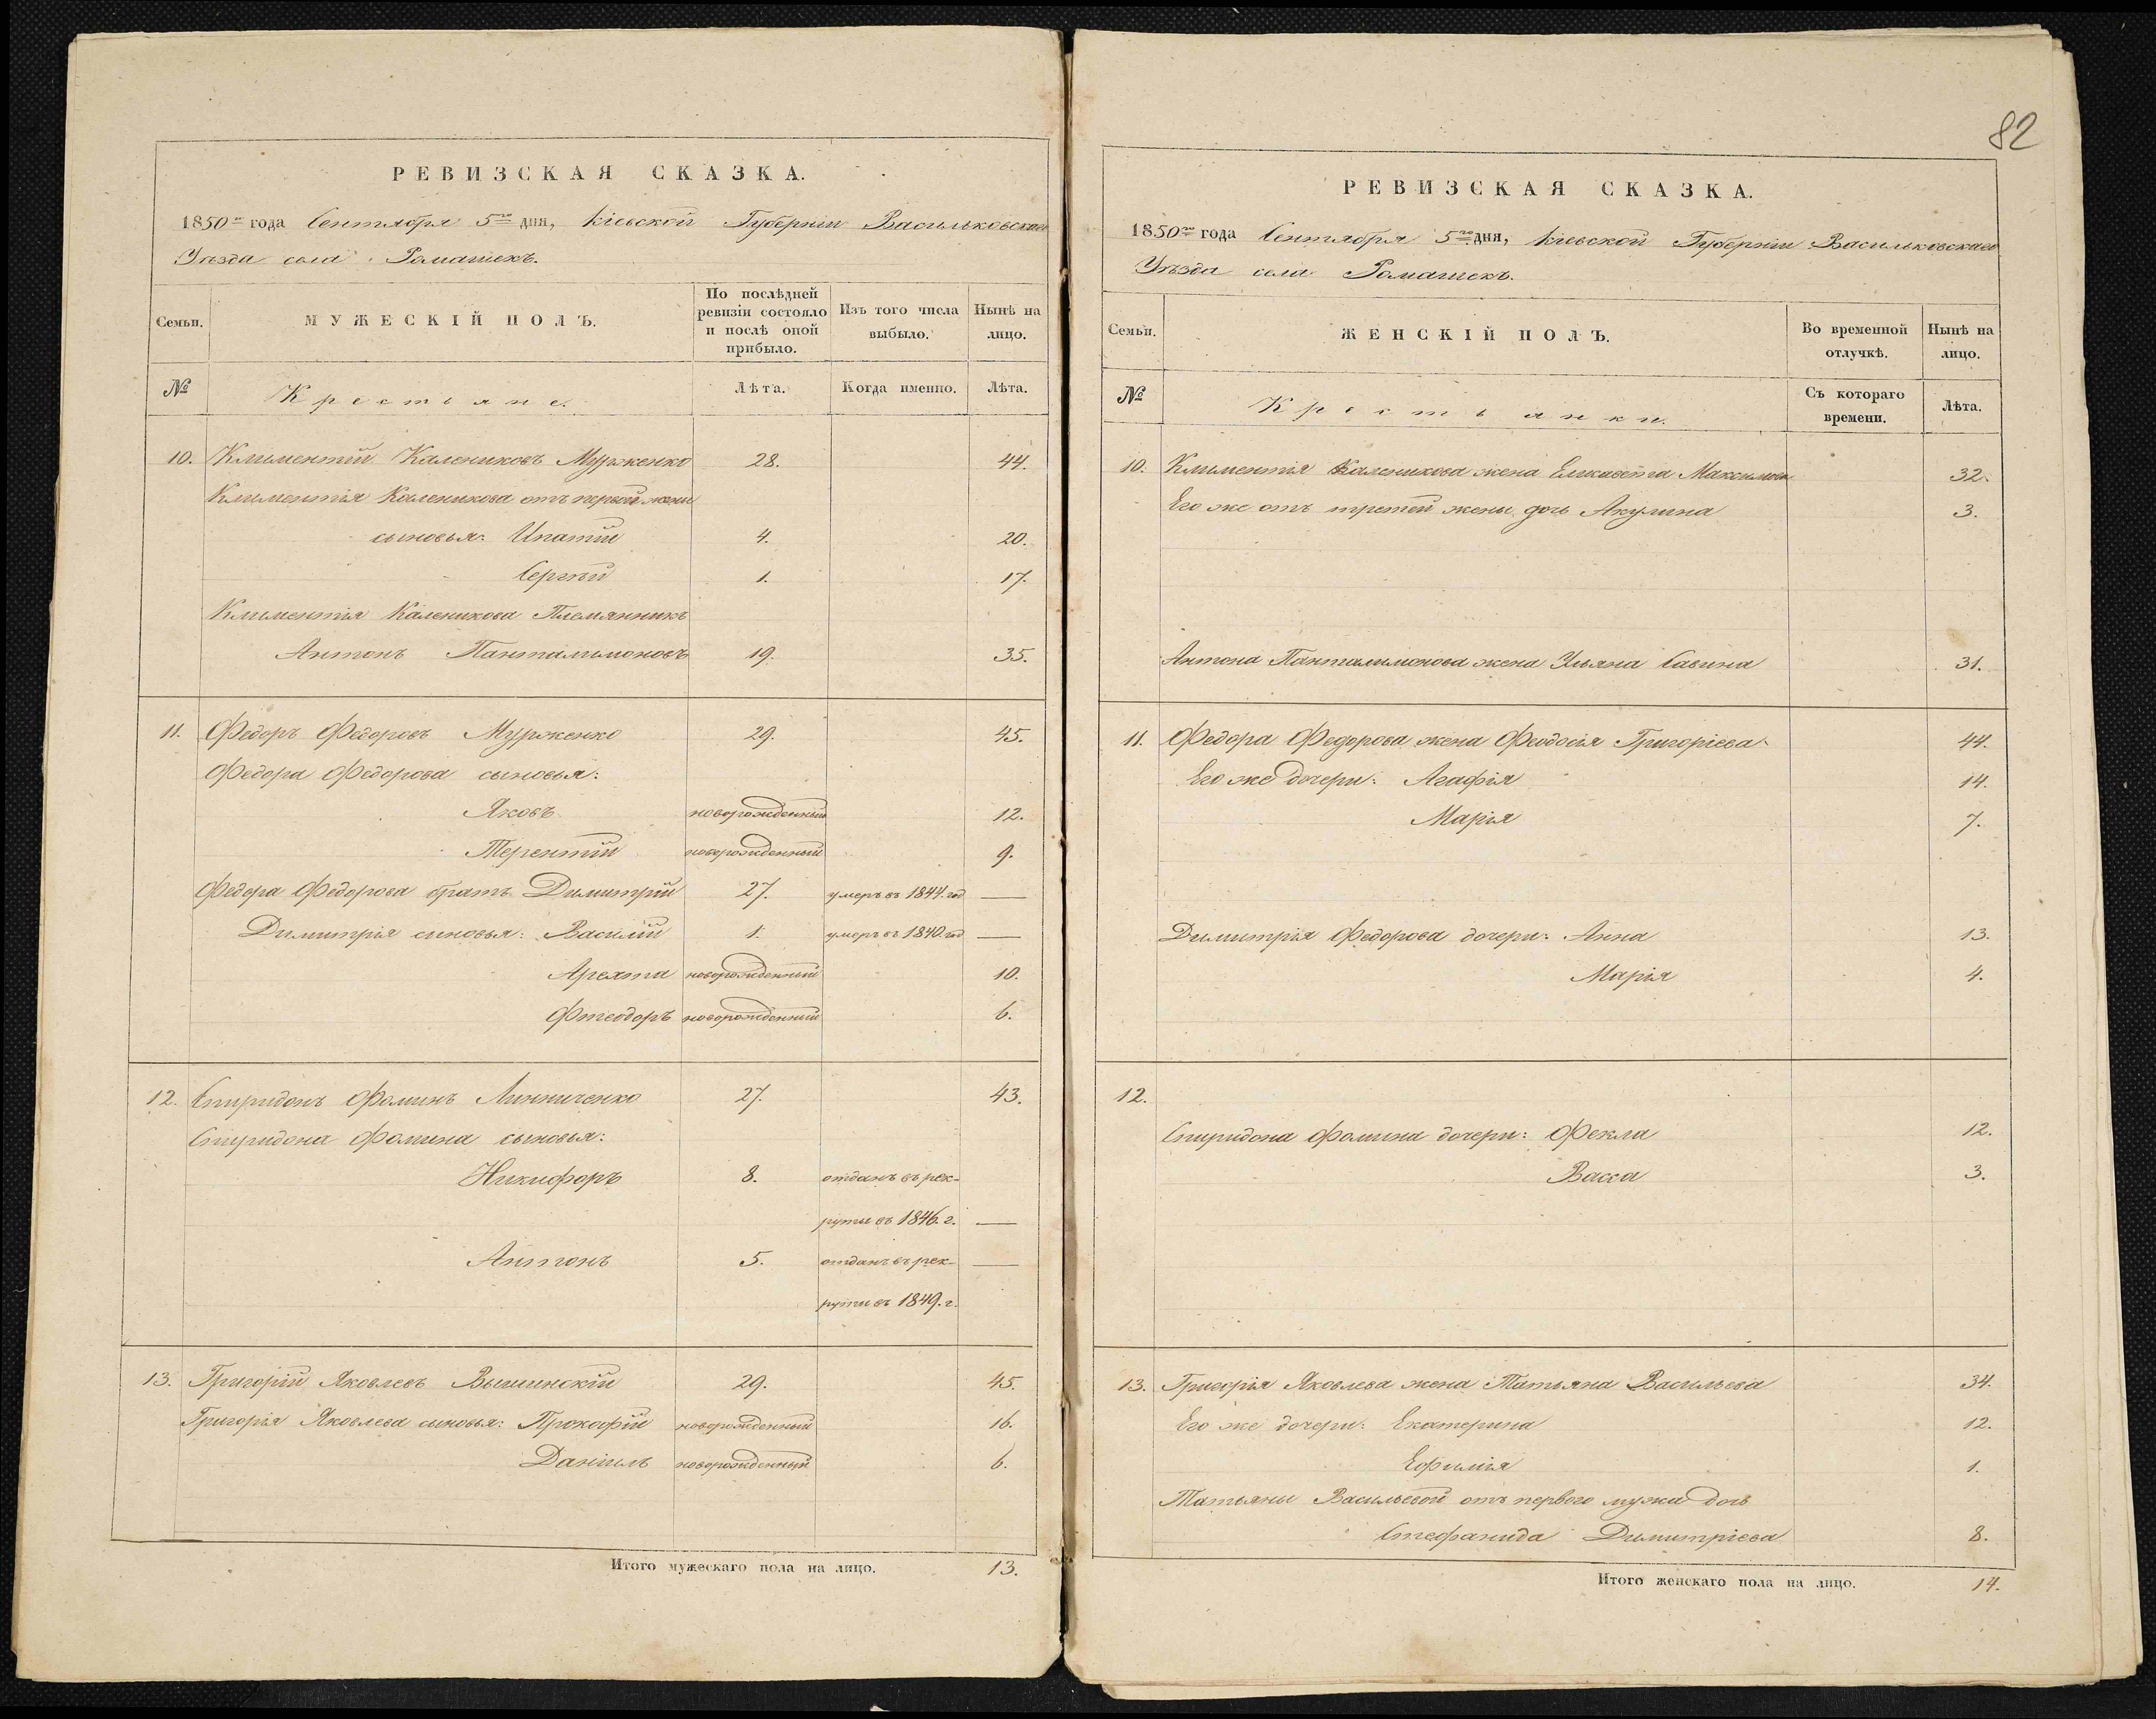 82
РЕВИЗСКАЯ СКАЗКА.
1850го года Сентября 5го дня, Кіевской Губерніи Васильковскаго
Уѣзда села Ромашекъ.
Семьи.
МУЖЕСКІЙ ПОЛЪ.
По послѣдней ревизіи состояло и послѣ оной прибыло.
Изъ того числа выбыло.
Нынѣ на лицо.
№ Крестьяне. Лѣта. Когда именно. Лѣта.
10. Климентій Калениковъ Мурженко 28. 44.
Климентія Каленикова отъ первой жены
сыновья: Ипатій 4. 20.
Сергѣй 1. 17.
Климентія Каленикова Племянникъ
Антонъ Панталимоновъ 19. 35.
11. Федоръ Федоровъ Мурженко 29. 45.
Федора Федорова сыновья:
Яковъ новорожденный 12.
Терентій новорожденный 9.
Федора Федорова братъ Димитрій 27. умеръ въ 1844. год —
Димитрія сыновья: Василій 1. умеръ въ 1840 год —
Арехта новорожденный 10.
Фтеодоръ новорожденный 6.
12. Спиридонъ Фоминъ Линниченко 27. 43.
Спиридона Фомина сыновья:
Никифоръ 8. отданъ въ рек-
руты въ 1846. г. —
Антонъ 5. отданъ въ рек- —
руты въ 1849. г.
13. Григорій Яковлевъ Вышинскій 29. 45.
Григорія Яковлева сыновья: Прокофій новорожденный 16.
Даніилъ новорожденный 6.
Итого мужескаго пола на лицо. 13.
РЕВИЗСКАЯ СКАЗКА.
1850го года Сентября 5го дня, Кіевской Губерніи Васильковскаго
Уѣзда села Ромашекъ.
Семьи.
ЖЕНСКІЙ ПОЛЪ.
Во временной отлучкѣ.
Нынѣ на лицо.
№ Крестьянки. Съ котораго времени. Лѣта.
10. Климентія Каленикова жена Елисавета Максимова 32.
Его же отъ третей жены дочь Акулина 3.
Антона Панталимонова жена Ульяна Савина 31.
11. Федора Федорова жена Феодосія Григоріева 44.
Его же дочери: Агафія 14.
Марія 7.
Димитрія Федорова дочери: Анна 13.
Марія 4.
12.
Спиридона Фомина дочери: Фекла 12.
Васса 3.
13. Григорія Яковлева жена Татьяна Васильева 34.
Его же дочери: Екатерина 12.
Ефимія 1.
Татьяны Васильевой отъ первого мужа дочь
Стефанида Димитріева 8.
Итого женскаго пола на лицо. 14.